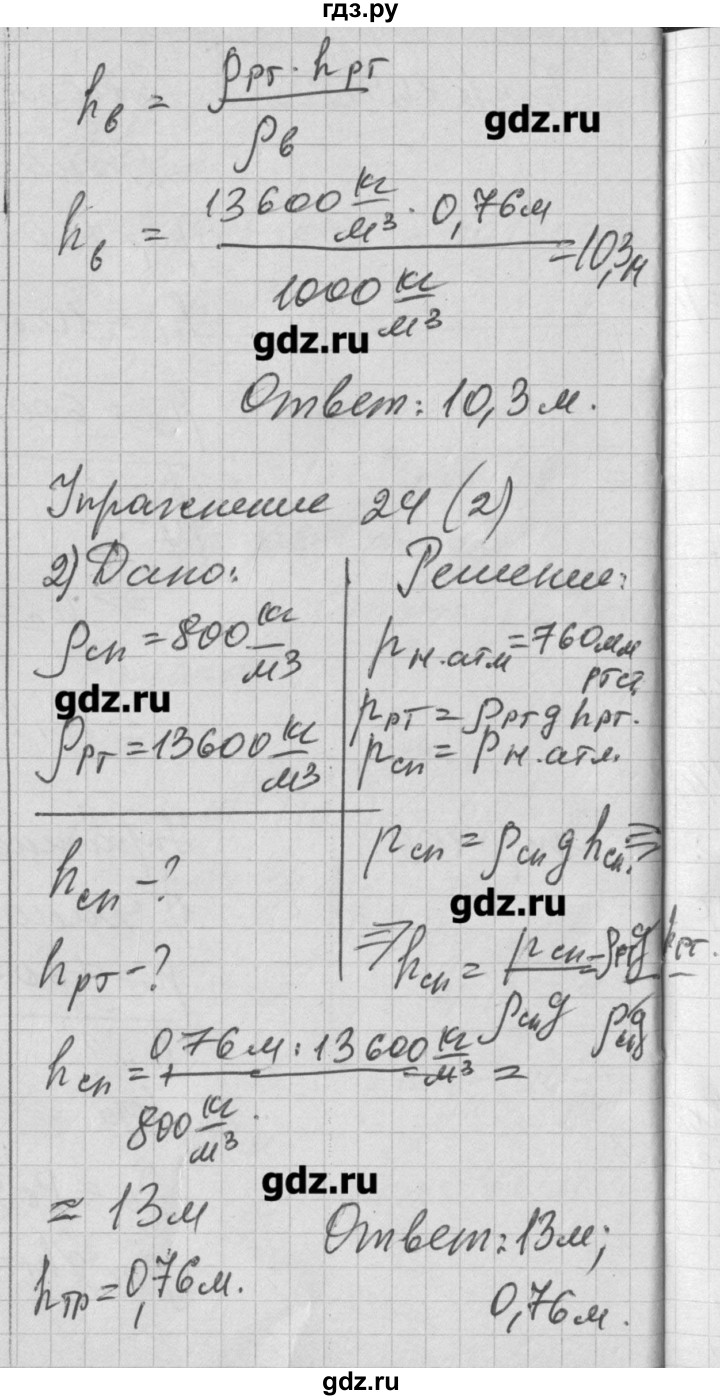 гдз.ру
h_в = ρ_рт · h_рт / ρ_в
gdz.ru
h_в = 13600 кг/м³ · 0,76 м / 1000 кг/м³ = 10,3 м
gdz.ru
Ответ: 10,3 м.
Упражнение 24 (2)
2) Дано:
ρ_сп = 800 кг/м³
gdz.ru
ρ_рт = 13600 кг/м³
h_сп - ?
h_рт - ?
Решение:
p_н.атм = 760 мм
рт ст
p_рт = ρ_рт g h_рт.
p_сп = p_н.атм.
p_сп = ρ_сп g h_сп. ⇒
gdz.ru
⇒ h_сп = p_сп / ρ_сп g = ρ_рт g h_рт. / ρ_сп g
h_сп = 0,76 м · 13600 кг/м³ / 800 кг/м³ =
gdz.ru
≈ 13 м
h_тр = 0,76 м.
Ответ: 13 м;
0,76 м.
gdz.ru